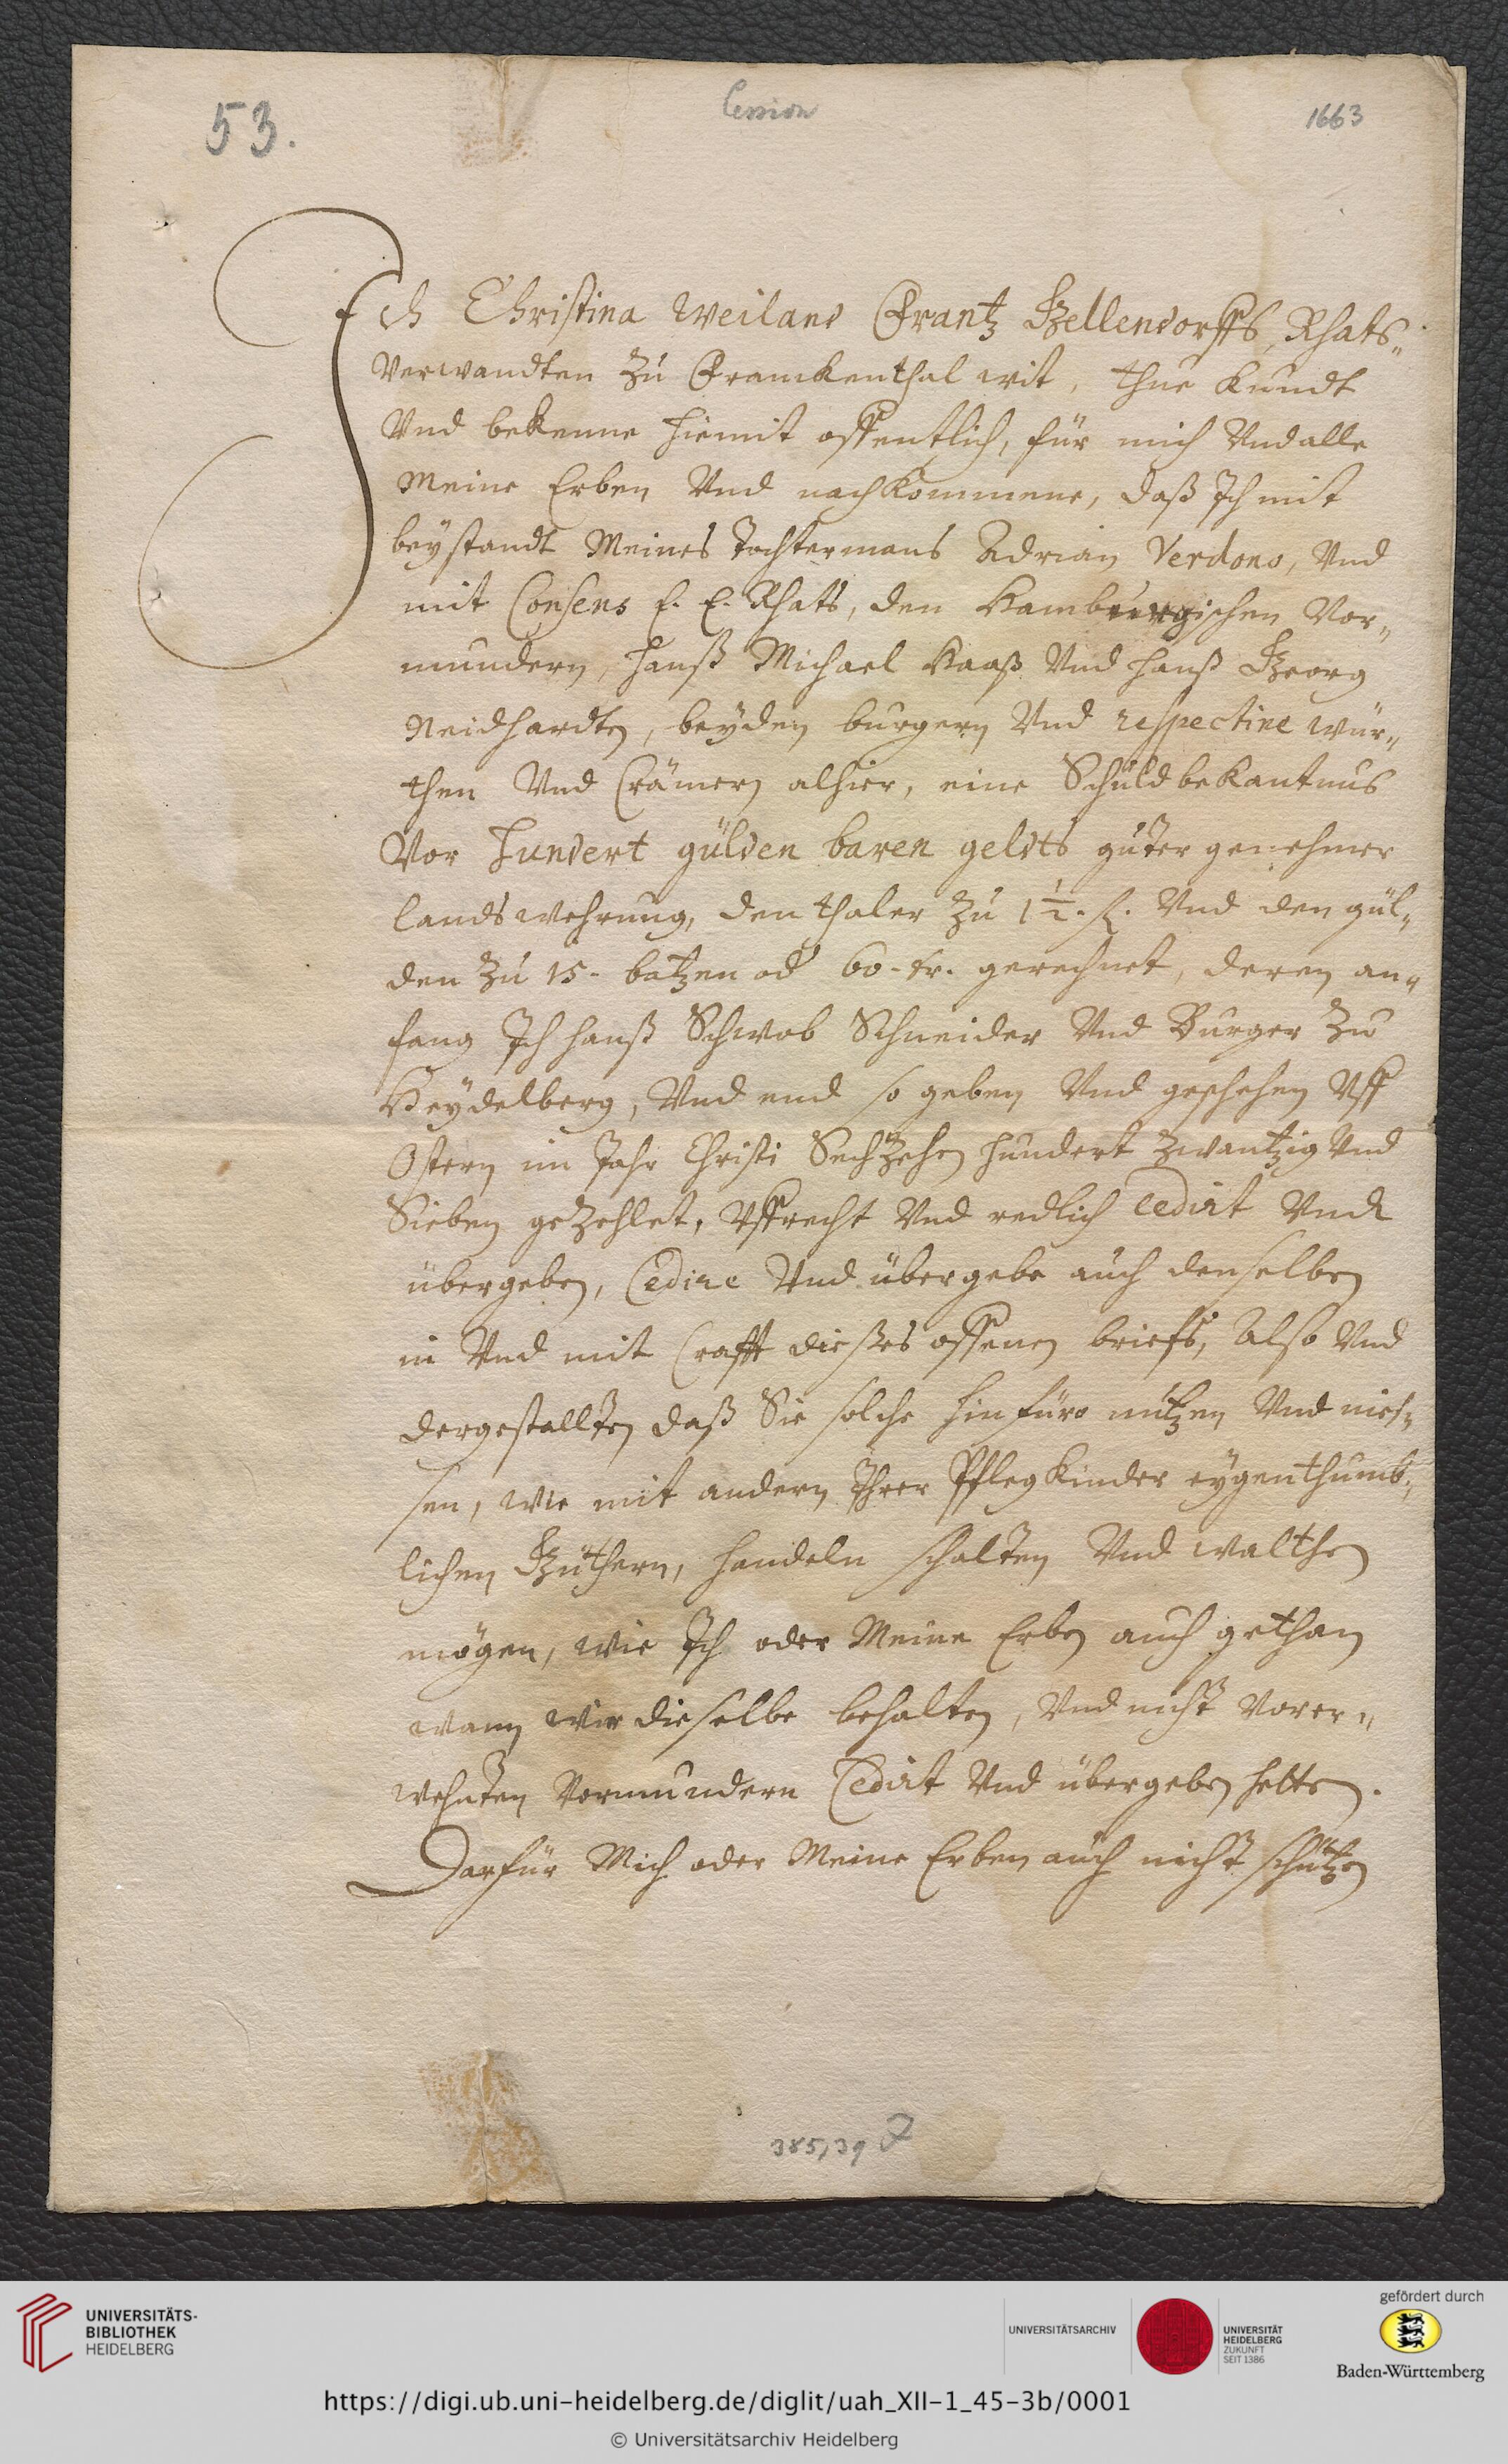 53.
Cession
1663
Ich Christina Weiland Frantz Gellendorffs, Rhats-
Verwandten zu Franckenthal wit, thue kundt
Vnd bekenne hiemit offentlich, für mich Vnd alle
Meine Erben Vnd nachkommene, daß Ich mit
beystandt Meines Tochtermans Adrian Verdono, Vnd
mit Consens E. E. Rhats, den Hamburgischen Vor-
mundern, Hanß Michael Haaß Vnd Hanß Georg
Neidhardten, beyden burgern Vnd respective Wür-
then Vnd Crämern alhier, eine Schuldbekantnus
Vor Hundert gülden baren geldts guter genehmer
landswehrung, den thaler zu 1½. fl. Vnd den gül-
den zu 15. batzen od 60. kr. gerechnet, deren an-
fang Ich Hanß Schwob Schneider Vnd Burger zu
Heydelberg, Vnd end so geben Vnd geschehen Vff
Ostern im Jahr Christi Sechzehen hundert zwantzig Vnd
Sieben gezehlet, Vffrecht Vnd redlich Cedirt Vnd
übergeben, Cedire Vnd übergebe auch denselben
in Vnd mit Crafft dießes offenen briefs, Also Vnd
dergestallten daß Sie solche hinfüro nutzen Vnd nies-
sen, Wie mit andern Ihrer Pflegkinder eygenthumb-
lichen Güthern, handeln schalten Vnd walthen
mögen, Wie Ich oder Meine Erben auch gethan
wann Wir dieselbe behalten, Vnd nicht Vorer-
wehnten Vormundern Cedirt Vnd übergeben hetten.
Darfür Mich oder Meine Erben auch nicht schützen
385,39
UNIVERSITÄTS-
BIBLIOTHEK
HEIDELBERG
UNIVERSITÄTSARCHIV
UNIVERSITÄT
HEIDELBERG
ZUKUNFT
SEIT 1386
gefördert durch
Baden-Württemberg
https://digi.ub.uni-heidelberg.de/diglit/uah_XII-1_45-3b/0001
© Universitätsarchiv Heidelberg